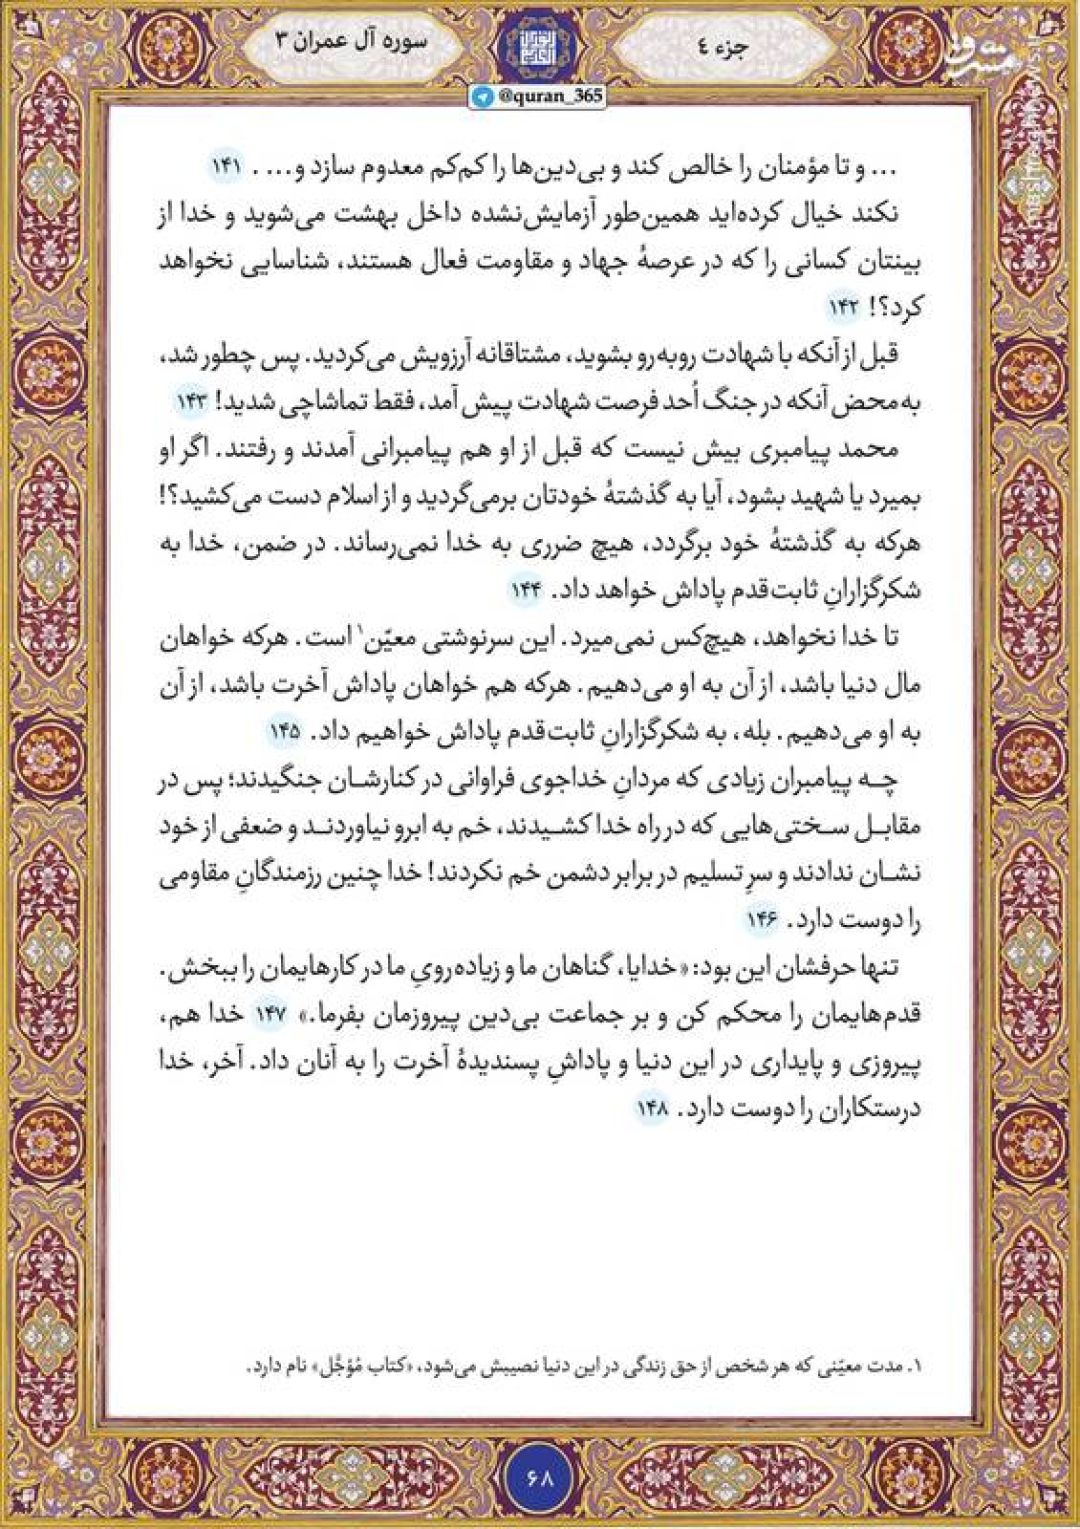 جزء ٤
سوره آل عمران ۳
مشرق
mashreghnews.ir
@quran_365
... و تا مؤمنان را خالص کند و بی‌دین‌ها را کم‌کم معدوم سازد و... . ۱۴۱
نکند خیال کرده‌اید همین‌طور آزمایش‌نشده داخل بهشت می‌شوید و خدا از
بینتان کسانی را که در عرصهٔ جهاد و مقاومت فعال هستند، شناسایی نخواهد
کرد؟! ۱۴۲
قبل از آنکه با شهادت روبه‌رو بشوید، مشتاقانه آرزویش می‌کردید. پس چطور شد،
به‌محض آنکه در جنگ اُحد فرصت شهادت پیش آمد، فقط تماشاچی شدید! ۱۴۳
محمد پیامبری بیش نیست که قبل از او هم پیامبرانی آمدند و رفتند. اگر او
بمیرد یا شهید بشود، آیا به گذشتهٔ خودتان برمی‌گردید و از اسلام دست می‌کشید؟!
هرکه به گذشتهٔ خود برگردد، هیچ ضرری به خدا نمی‌رساند. در ضمن، خدا به
شکرگزارانِ ثابت‌قدم پاداش خواهد داد. ۱۴۴
تا خدا نخواهد، هیچ‌کس نمی‌میرد. این سرنوشتی معیّن۱ است. هرکه خواهان
مال دنیا باشد، از آن به او می‌دهیم. هرکه هم خواهان پاداش آخرت باشد، از آن
به او می‌دهیم. بله، به شکرگزارانِ ثابت‌قدم پاداش خواهیم داد. ۱۴۵
چه پیامبران زیادی که مردانِ خداجوی فراوانی در کنارشان جنگیدند؛ پس در
مقابل سختی‌هایی که در راه خدا کشیدند، خم به ابرو نیاوردند و ضعفی از خود
نشان ندادند و سرِ تسلیم در برابر دشمن خم نکردند! خدا چنین رزمندگانِ مقاومی
را دوست دارد. ۱۴۶
تنها حرفشان این بود: «خدایا، گناهان ما و زیاده‌رویِ ما در کارهایمان را ببخش.
قدم‌هایمان را محکم کن و بر جماعت بی‌دین پیروزمان بفرما.» ۱۴۷ خدا هم،
پیروزی و پایداری در این دنیا و پاداشِ پسندیدهٔ آخرت را به آنان داد. آخر، خدا
درستکاران را دوست دارد. ۱۴۸
۱. مدت معیّنی که هر شخص از حق زندگی در این دنیا نصیبش می‌شود، «کتاب مُؤجَّل» نام دارد.
۶۸